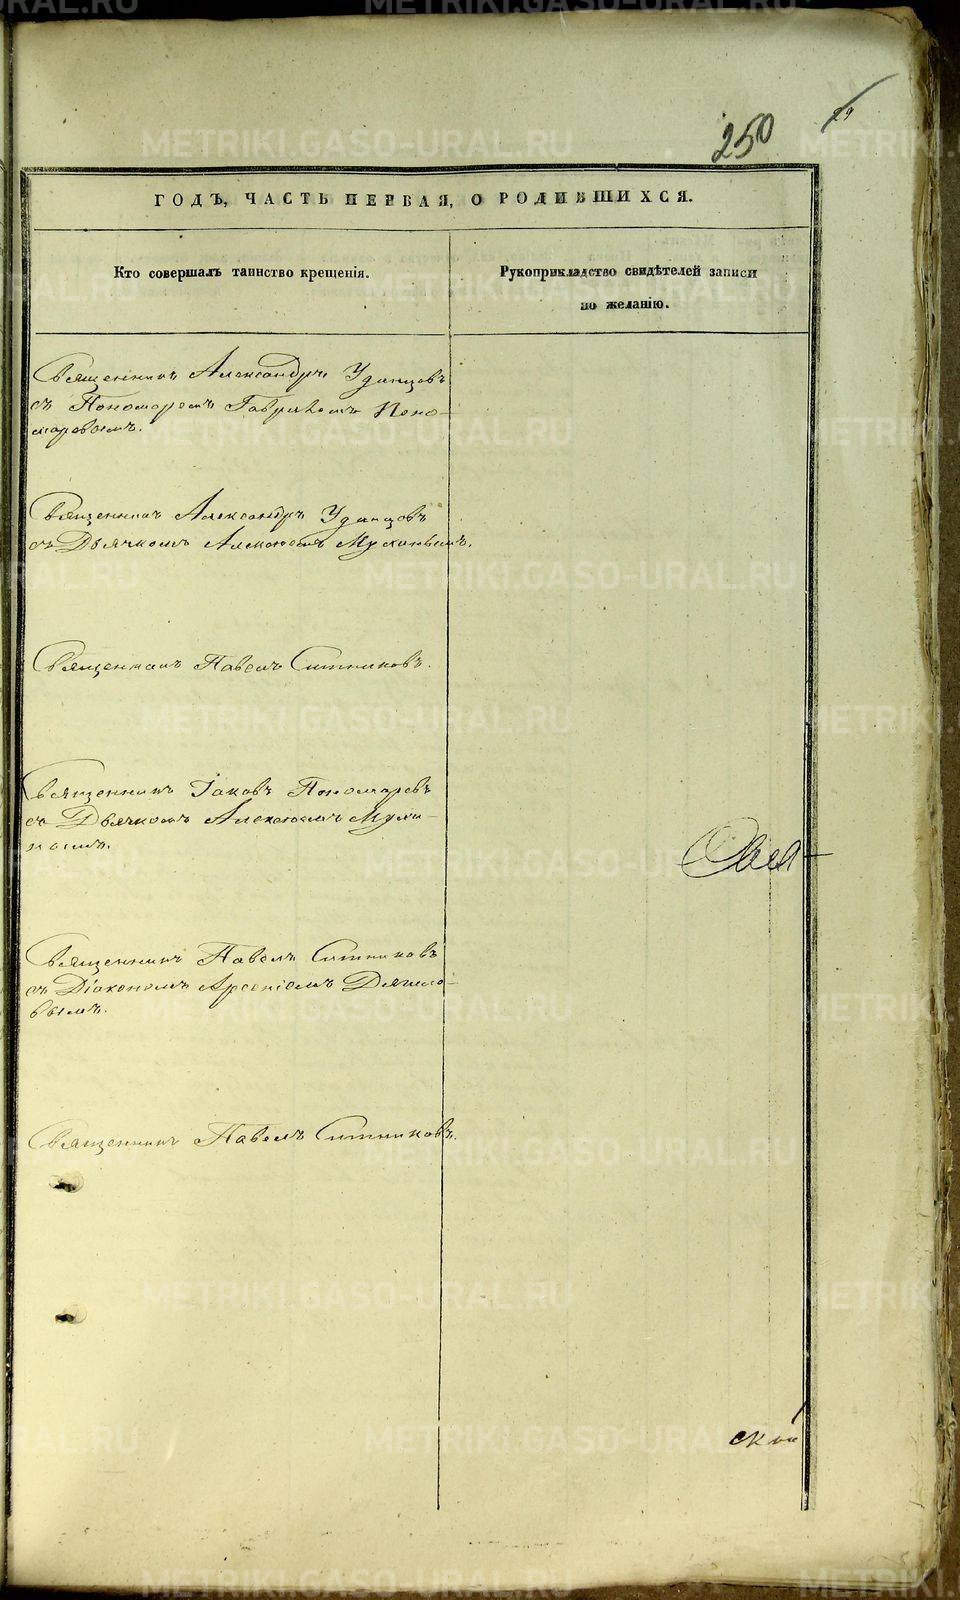 250
29
ГОДЪ, ЧАСТЬ ПЕРВАЯ, О РОДИВШИХСЯ.
Кто совершалъ таинство крещенія.
Рукоприкладство свидѣтелей записи
по желанію.
Священникъ Александръ Удинцовъ
съ Пономаремъ Гавріиломъ Поно-
маревымъ.
Священникъ Александръ Удинцовъ
съ Дьячкомъ Алексѣемъ
Священникъ Павелъ Ситниковъ.
Священникъ Іаковъ Пономаревъ
съ Дьячкомъ Алексѣемъ
Священникъ Павелъ Ситниковъ
съ Діакономъ Арсеніемъ
вымъ.
Священникъ Павелъ Ситниковъ.
METRIKI.GASO-URAL.RU